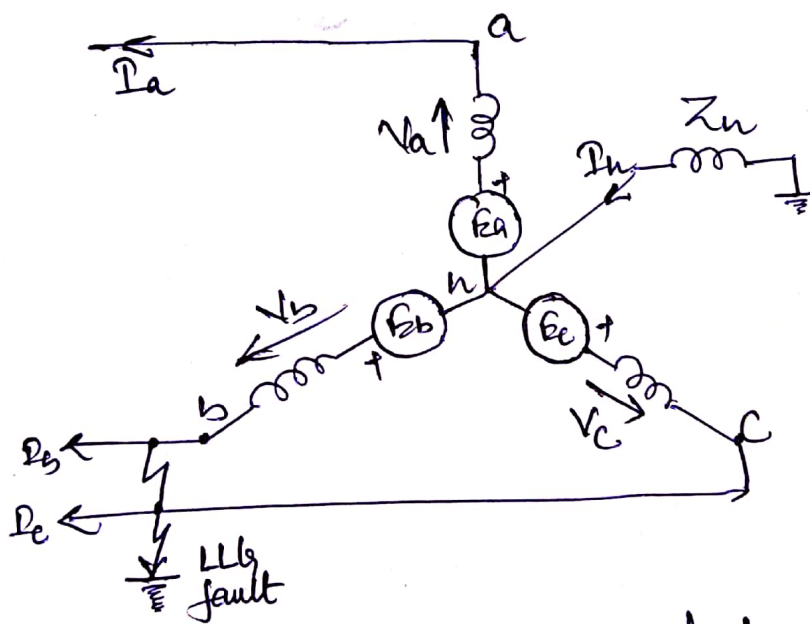 a
Ia
Va
Zn
In
+
Ea
n
Vb
Eb
+
Ec
+
b
Vc
c
Ib
Ic
LLG
fault